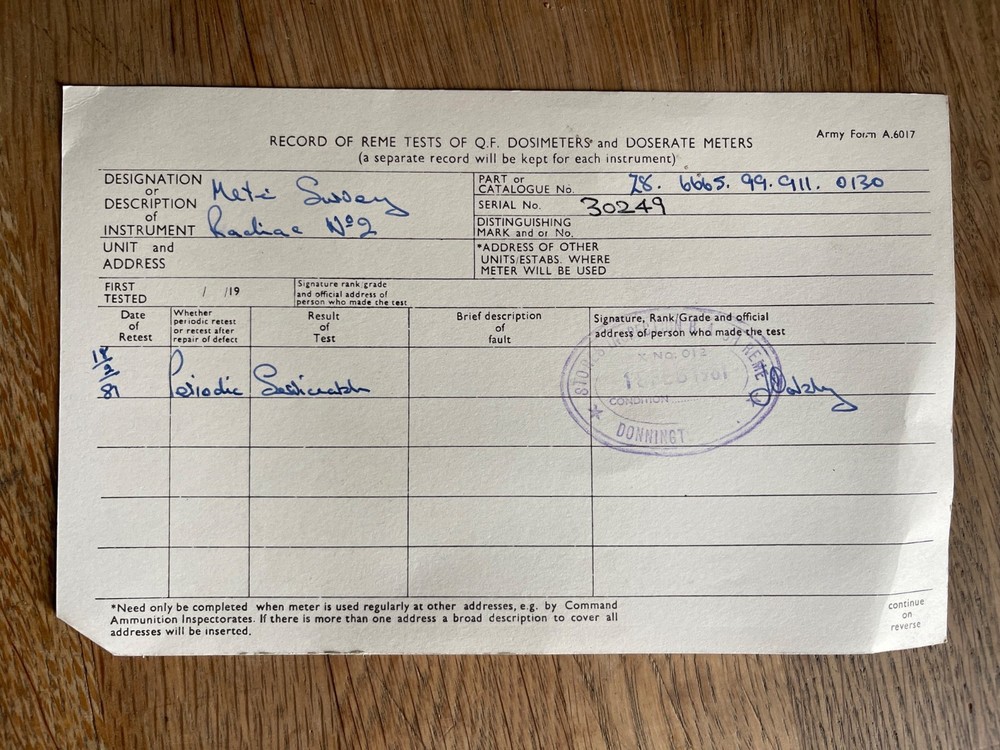 Army Form A.6017
RECORD OF REME TESTS OF Q.F. DOSIMETERS and DOSERATE METERS
(a separate record will be kept for each instrument)
DESIGNATION
or
DESCRIPTION
of
INSTRUMENT
Survey
Radiac Nº2
PART or
CATALOGUE No.
Z8. 6665. 99. 911. 0130
SERIAL No. 30249
DISTINGUISHING
MARK and or No.
UNIT and
ADDRESS
*ADDRESS OF OTHER
UNITS/ESTABS. WHERE
METER WILL BE USED
FIRST
TESTED
/ /19
Signature rank/grade
and official address of
person who made the test
Date
of
Retest
Whether
periodic retest
or retest after
repair of defect
Result
of
Test
Brief description
of
fault
Signature, Rank/Grade and official
address of person who made the test
18/2/81
Periodic
REME
X NO. 012
18 FEB 1981
CONDITION
DONNINGT
*Need only be completed when meter is used regularly at other addresses, e.g. by Command
Ammunition Inspectorates. If there is more than one address a broad description to cover all
addresses will be inserted.
continue
on
reverse